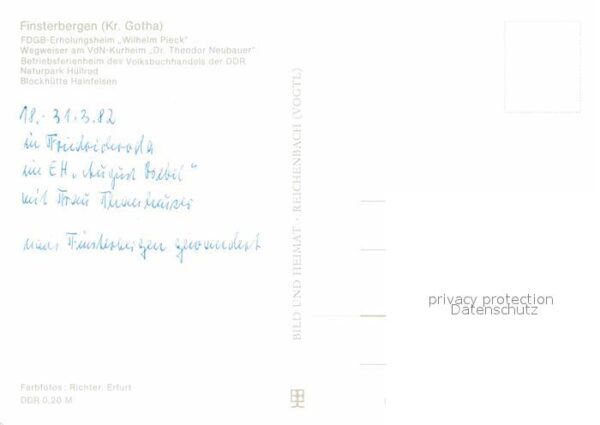 Finsterbergen (Kr. Gotha)
FDGB-Erholungsheim „Wilhelm Pieck"
Wegweiser am VdN-Kurheim „Dr. Theodor Neubauer"
Betriebsferienheim des Volksbuchhandels der DDR
Naturpark Hüllrod
Blockhütte Hainfelsen
18.-31.3.82
in Friedrichroda
im EH „August Bebel"
mit Frau
nach Finsterbergen gewandert
BILD UND HEIMAT · REICHENBACH (VOGTL)
privacy protection
Datenschutz
Farbfotos: Richter, Erfurt
DDR 0,20 M